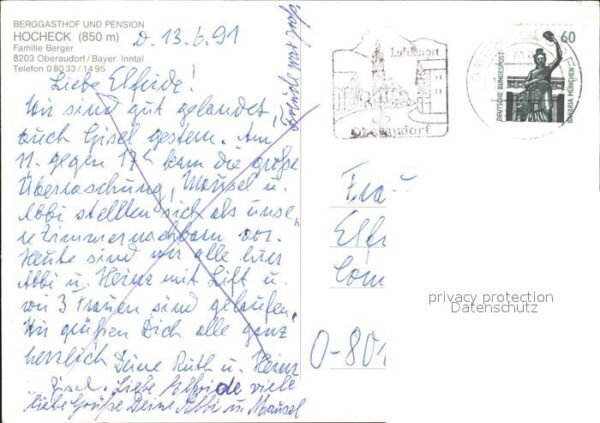 BERGGASTHOF UND PENSION
HOCHECK (850 m)
Familie Berger
8203 Oberaudorf / Bayer. Inntal
Telefon 0 80 33 / 14 95
D. 13.6.91
Liebe Elfride!
Wir sind gut gelandet,
auch Gisel gestern. Am
11. gegen 17h kam die große
Überraschung, Mausel u.
Abbi stellten sich als unse-
re Zimmernachbarn vor.
Heute sind wir alle hier
Abbi u. Heinz mit Lift u.
wir 3 Frauen sind gelaufen.
Wir grüßen Dich alle ganz
herzlich Deine Ruth u. Heinz
Gisel. Liebe Elfride viele
liebe Grüße Deine Abbi u. Mausel
Freude war groß
Luftkurort
Oberaudorf
60
DEUTSCHE BUNDESPOST
BAVARIA MÜNCHEN
Frau
Elf
O-801
privacy protection
Datenschutz